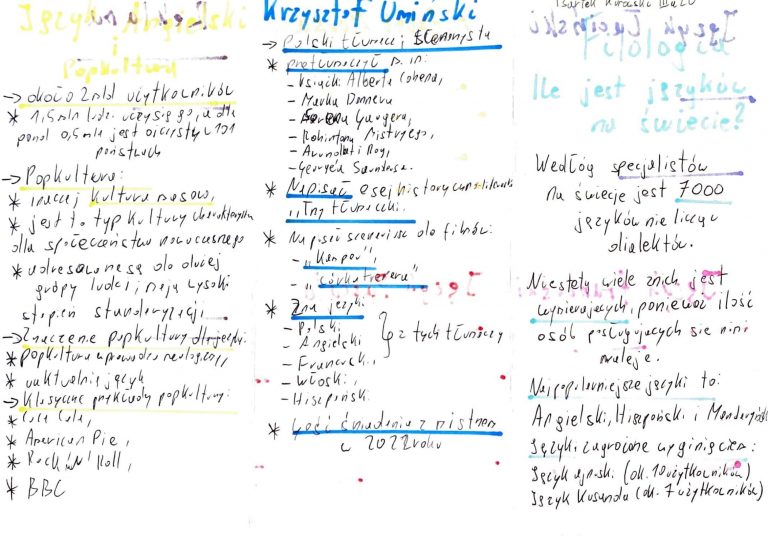 Język Angielski
i
Popkultura
→ około 2 mld użytkowników
* 1,5 mld ludzi uczy się go, a dla
ponad 0,5 mld jest ojczysty w 101
państwach
→ Popkultura:
* inaczej kultura masowa,
* jest to typ kultury charakterystyczn
dla społeczeństwa nowoczesnego
* adresowane są do dużej
grópy ludzi i mają wysoki
stopień standaryzacji,
→ Znaczenie popkultury dla języka:
* popkultura wprowadza neologizmy,
* uaktualnia język
→ Klasyczne przykłady popkultury:
* Coca Cola,
* American Pie,
* Rock'n' Roll,
* BBC
Krzysztof Umiński
→ Polski tłumacz i scenarzysta
* przetłumaczył m.in:
- Książki Alberta Cohena,
- Marka Dannera
- Gorana
- Rohintona Mistry'ego,
- Arundhati Roy,
- George'a Saundersa.
* Napisał esej historyczno-literacki
"Trzy tłumaczki.
* Napisał scenariusz do filmów:
- "Kampou",
- "Córka trenera"
* Zna języki
- Polski
- Angielski
} z tych tłumaczy
- Francuski,
- Włoski,
- Hiszpański
* Gość śniadania z mistrzem
w 2022 roku
Filologia
Ile jest języków
na świecie?
Wedłóg specjalistów
na świecie jest 7000
języków nie licząc
dialektów.
Niestety wiele z nich jest
wymierających, ponieważ ilość
osób posługujących się nimi
maleje.
Najpopularniejsze języki to:
Angielski, Hiszpański i Mandaryński
Języki zagrożone wyginięciem:
Język ajnoski (ok. 10 użytkowników)
Język Kusunda (ok. 7 użytkowników)